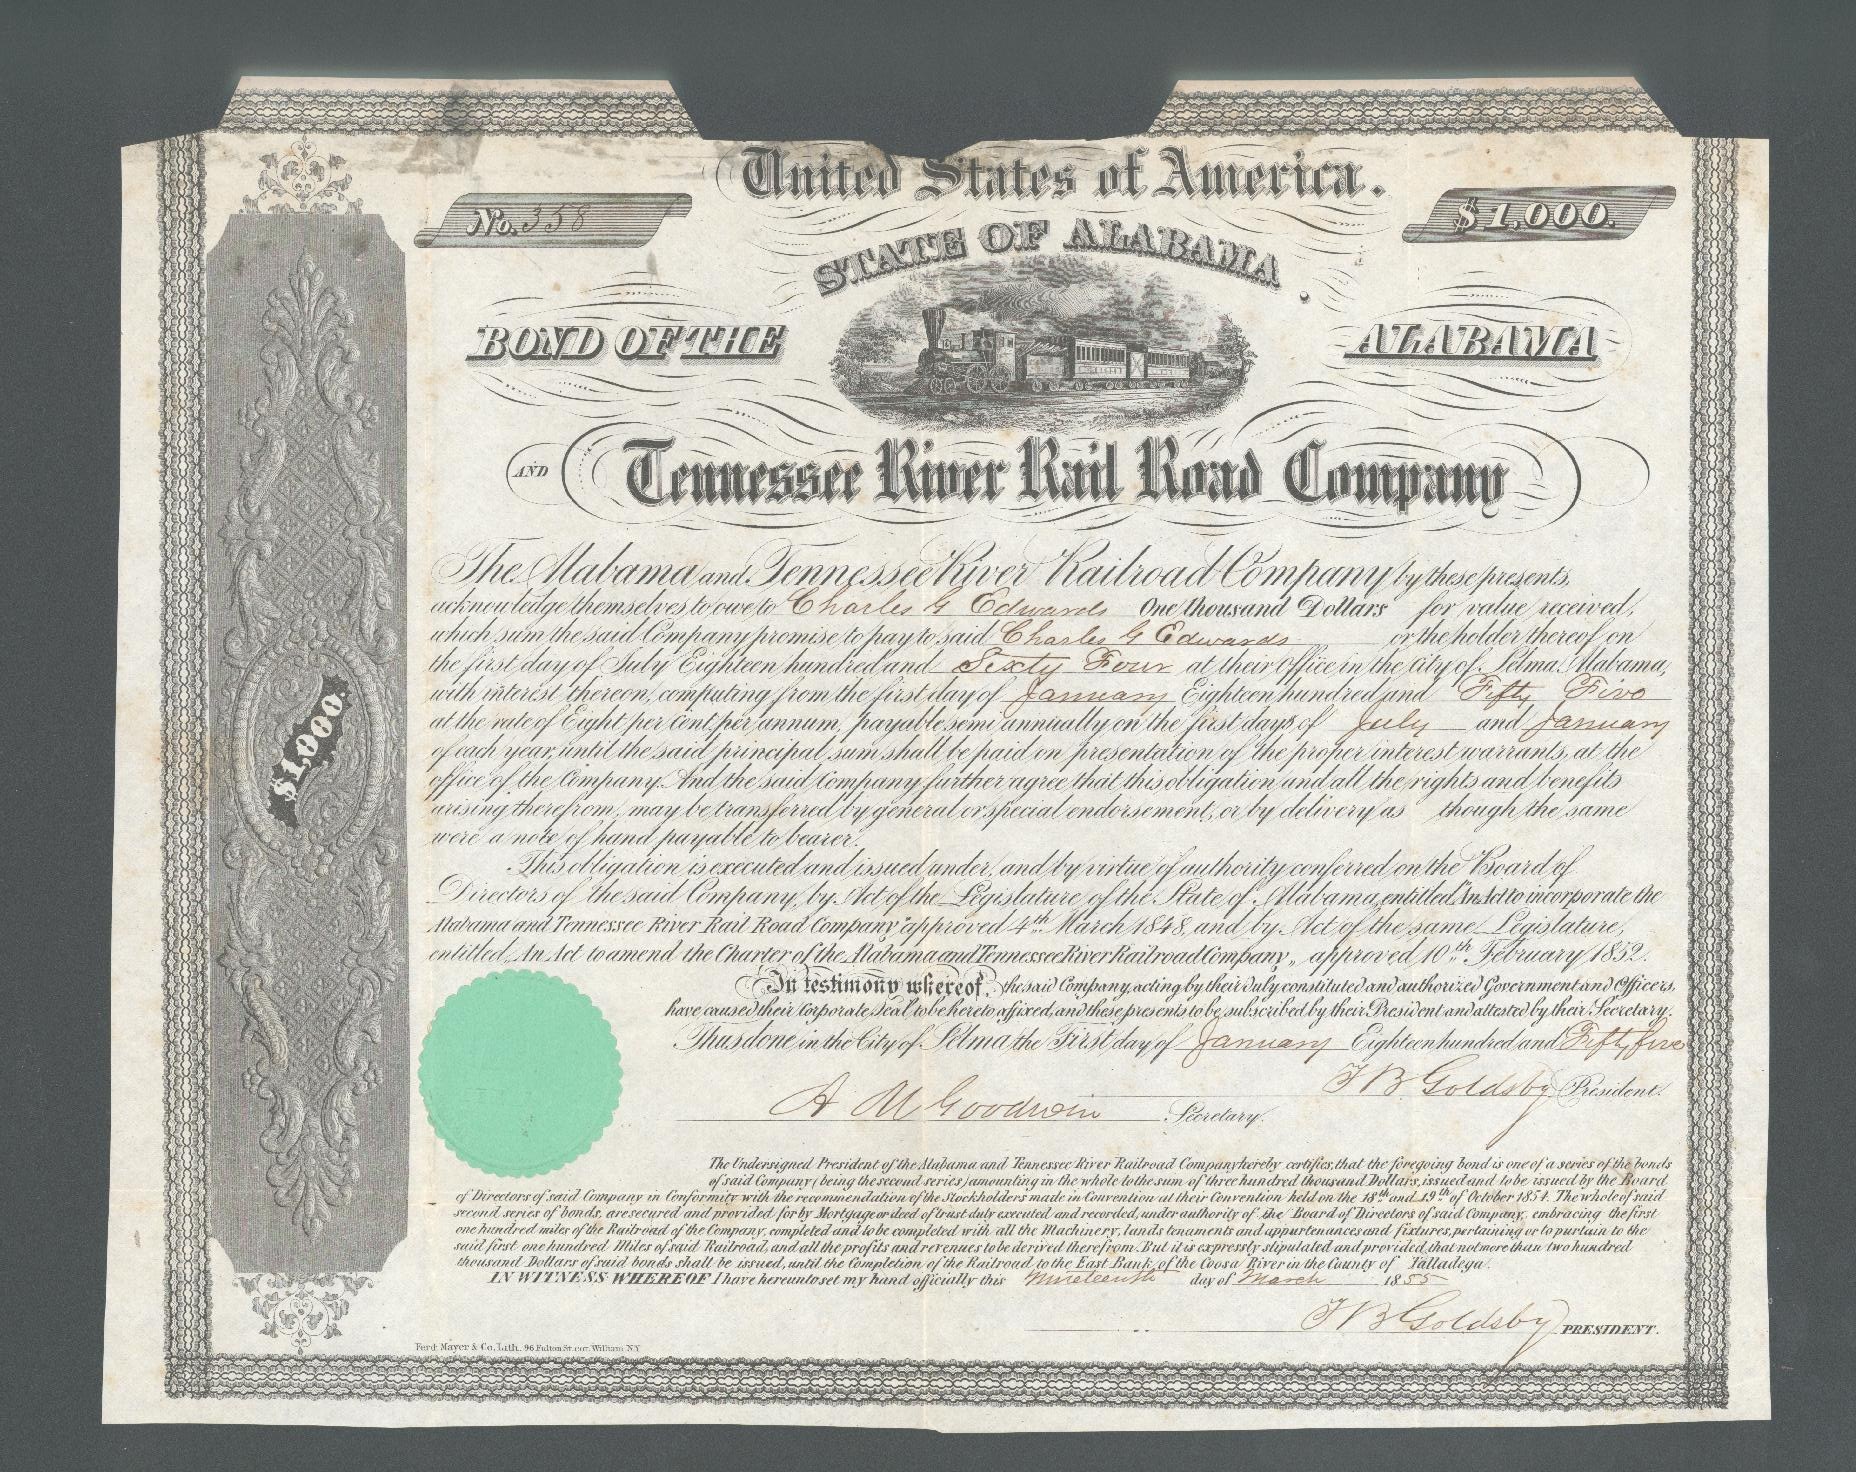 United States of America.
No. 358
$1,000.
STATE OF ALABAMA
BOND OF THE ALABAMA
AND Tennessee River Rail Road Company
The Alabama and Tennessee River Railroad Company by these presents,
acknowledge themselves to owe to Charles G Edwards One thousand Dollars for value received,
which sum the said Company promise to pay to said Charles G Edwards or the holder thereof on
the first day of July Eighteen hundred and Sixty Four at their Office in the City of Selma Alabama,
with interest thereon, computing from the first day of January Eighteen hundred and Fifty Five
at the rate of Eight per Cent. per annum, payable semi annually on the first days of July and January
of each year, until the said principal sum shall be paid on presentation of the proper interest warrants, at the
office of the Company. And the said Company further agree that this obligation and all the rights and benefits
arising therefrom, may be transferred by general or special endorsement, or by delivery as though the same
were a note of hand payable to bearer.
$1,000.
This obligation is executed and issued under, and by virtue of authority conferred on the Board of
Directors of the said Company, by Act of the Legislature of the State of Alabama, entitled "An Act to incorporate the
Alabama and Tennessee River Rail Road Company," approved 4th March 1848, and by Act of the same Legislature,
entitled, An Act to amend the Charter of the Alabama and Tennessee River Railroad Company, approved 10th February 1852.
In testimony whereof, the said Company, acting by their duly constituted and authorized Government and Officers,
have caused their Corporate Seal to be hereto affixed, and these presents to be subscribed by their President and attested by their Secretary.
Thus done in the City of Selma the First day of January Eighteen hundred and Fifty five
T B Goldsby President.
A M Goodwin Secretary.
The Undersigned President of the Alabama and Tennessee River Railroad Company hereby certifies, that the foregoing bond is one of a series of the bonds
of said Company (being the second series) amounting in the whole to the sum of three hundred thousand Dollars, issued and to be issued by the Board
of Directors of said Company in Conformity with the recommendation of the Stockholders made in Convention at their Convention held on the 18th and 19th of October 1854. The whole of said
second series of bonds, are secured and provided for by Mortgage or deed of trust duly executed and recorded, under authority of the Board of Directors of said Company, embracing the first
one hundred miles of the Railroad of the Company, completed and to be completed with all the Machinery, lands tenaments and appurtenances and fixtures, pertaining or to purtain to the
said first one hundred Miles of said Railroad, and all the profits and revenues to be derived therefrom. But it is expressly stipulated and provided, that not more than two hundred
thousand Dollars of said bonds shall be issued, until the Completion of the Railroad to the East Bank, of the Coosa River in the County of Talladega.
IN WITNESS WHEREOF I have hereunto set my hand officially this Nineteenth day of March 1855
T B Goldsby PRESIDENT.
Ferd. Mayer & Co. Lith. 96 Fulton St. cor. William N.Y